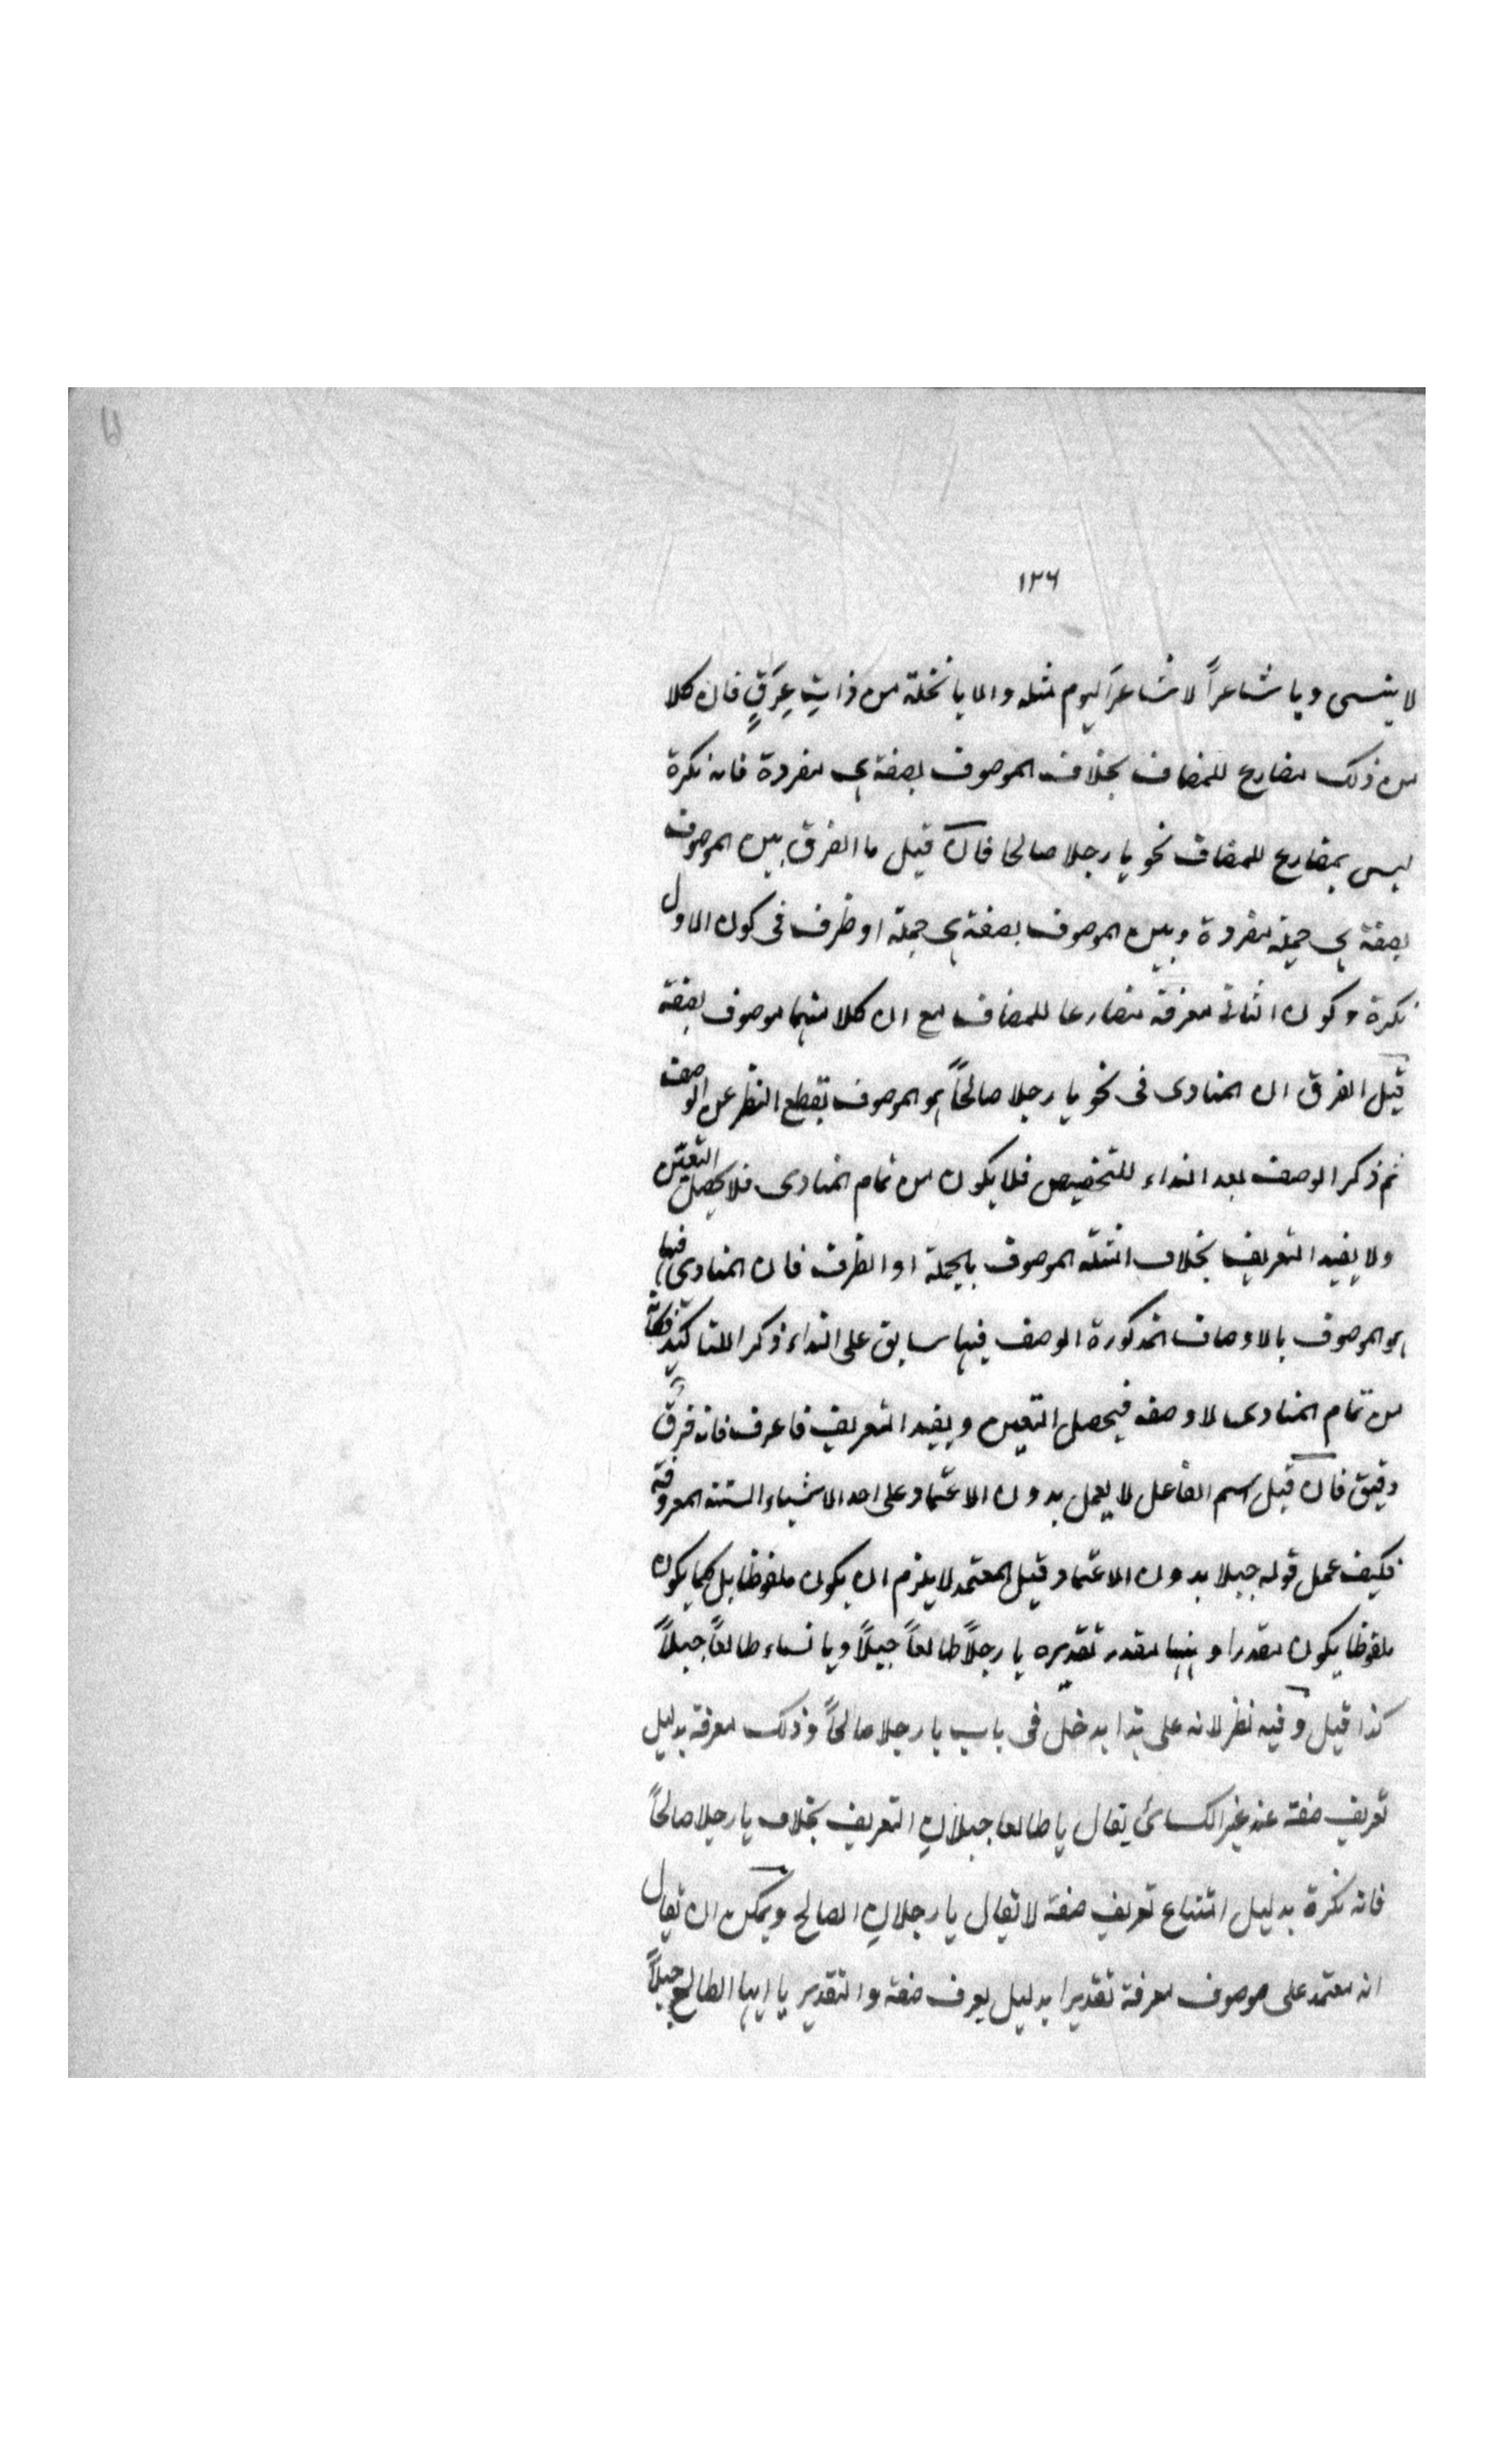 ١٢٦
لا ينسى ويا شاعراً لا شاعرَ اليوم مثله والا يا نخلة من ذاتِ عِرَقٍ فان كلا
من ذلك مضارع للمضاف بخلاف الموصوف بصفة هى مفردة فانه نكرة
ليس بمضارع للمضاف نحو يا رجلا صالحا فان قيل ما الفرق بين الموصوف
بصفة هى جملة مفردة وبين الموصوف بصفة هى جملة او ظرف فى كون الاول
نكرة وكون الثانى معرفة مضارعا للمضاف مع ان كلا منهما موصوف بصفة
قيل الفرق ان المنادى فى نحو يا رجلا صالحاً هو الموصوف بقطع النظر عن الوصف
ثم ذكر الوصف بعد النداء للتخصيص فلا يكون من تمام المنادى فلا يحصل التعين
ولا يفيد التعريف بخلاف امثلة الموصوف بالجملة او الظرف فان المنادى فيها
هو الموصوف بالاوصاف المذكورة الوصف فيها سابق على النداء ذكر للتاكيد
من تمام المنادى لا وصفه فيحصل التعين ويفيد التعريف فاعرف فانه فرق
دقيق فان قيل اسم الفاعل لا يعمل بدون الاعتماد على احد الاشياء الستة المعروفة
فكيف عمل قوله جبلا بدون الاعتماد قيل المعتمد لا يلزم ان يكون ملفوظا بل كما يكون
ملفوظا يكون مقدرا وههنا مقدر تقديره يا رجلاً طالعاً جبلاً ويا نساء طالعاً جبلاً
كذا قيل وفيه نظر لانه على هذا يدخل فى باب يا رجلا صالحاً وذلك معرفة بدليل
تعريف صفته عند غير الكسائى يقال يا طالعا جبلا التعريف بخلاف يا رجلا صالحاً
فانه نكرة بدليل امتناع تعريف صفته لا يقال يا رجلا الصالح ويمكن ان يقال
انه معتمد على موصوف معرفة تقديرا بدليل يعرف صفته والتقدير يا ايها الطالع جبلاً